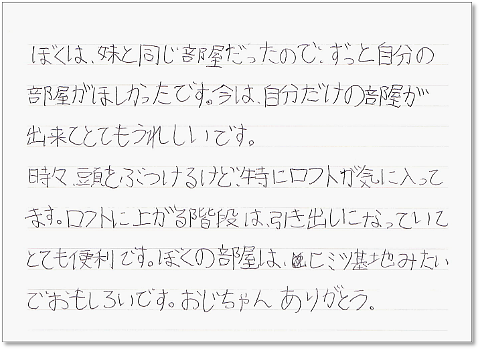 ぼくは、妹と同じ部屋だったので、ずっと自分の
部屋がほしかったです。今は、自分だけの部屋が
出来てとてもうれしいです。
時々、頭をぶつけるけど、特にロフトが気に入って
ます。ロフトに上がる階段は、引き出しになっていて
とても便利です。ぼくの部屋は、ヒミツ基地みたい
でおもしろいです。おじちゃん ありがとう。